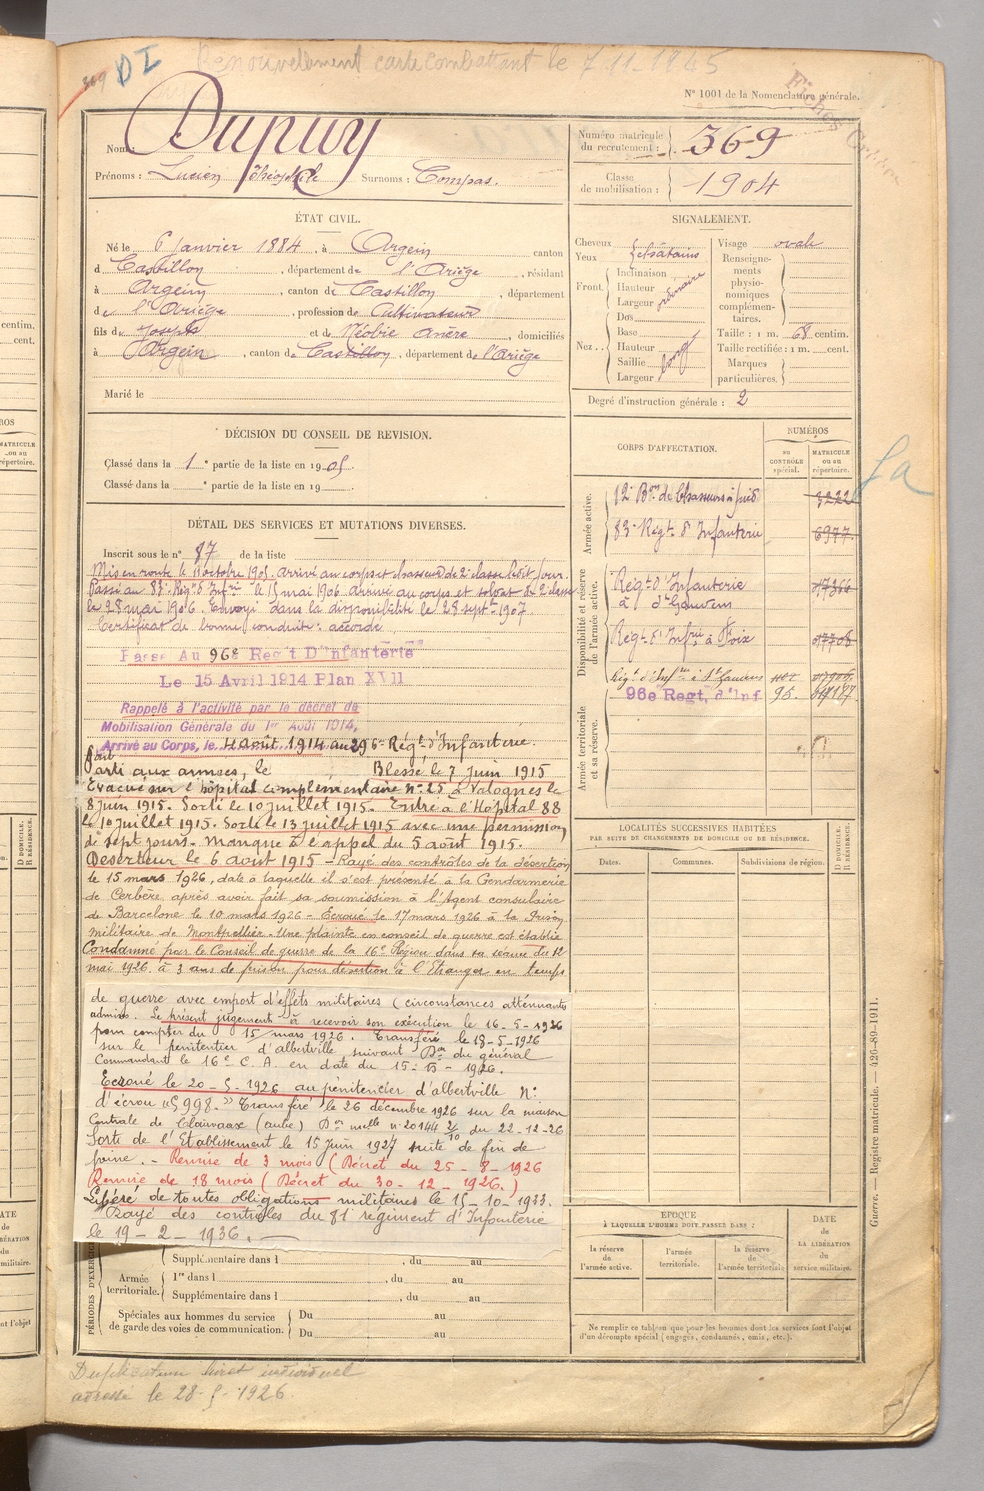 369 DI Renouvellement carte combattant le 7.11.1945
N° 1001 de la Nomenclature générale.
Nom : Dupuy
Prénoms : Lucien Théophile Surnoms : Compas.
Numéro matricule du recrutement : 369
Classe de mobilisation : 1904
ÉTAT CIVIL.
Né le 6 Janvier 1884, à Argein canton
d Castillon, département de l'Ariège, résidant
à Argein, canton de Castillon, département
de l'Ariège, profession de Cultivateur
fils de Joseph et de Anère, domiciliés
à Argein, canton de Castillon, département de l'Ariège
Marié le
SIGNALEMENT.
Cheveux
Yeux châtains
Front. Inclinaison
Hauteur
Largeur
ordinaire
Nez. Dos
Base
Hauteur
Saillie
Largeur
long
Visage ovale
Renseignements physionomiques complémentaires.
Taille : 1 m. 68 centim.
Taille rectifiée : 1 m. cent.
Marques particulières.
Degré d'instruction générale : 2
DÉCISION DU CONSEIL DE REVISION.
Classé dans la 1e partie de la liste en 1905.
Classé dans la e partie de la liste en 19
DÉTAIL DES SERVICES ET MUTATIONS DIVERSES.
Inscrit sous le n° 87 de la liste
Mis en route le 11 octobre 1905. Arrivé au corps et chasseur de 2e classe ledit jour.
Passé au 83e Régt d'Infrie le 15 mai 1906 arrivé au corps et soldat de 2e classe
le 28 mai 1906. Envoyé dans la disponibilité le 28 septe 1907
Certificat de bonne conduite : accordé
Passé Au 96e Regt D'Infanterie
Le 15 Avril 1914 Plan XVII
Rappelé à l'activité par le décret de
Mobilisation Générale du 1er Août 1914,
Arrivé au Corps, le 4 Août 1914 au 296e Régt d'Infanterie.
Parti aux armées, le Blessé le 7 Juin 1915
Evacué sur l'hôpital complémentaire n° 25 à Valognes le
8 juin 1915. Sorti le 10 juillet 1915. Entré à l'Hôpital 88
le 10 juillet 1915. Sorti le 13 juillet 1915 avec une permission
de sept jours. Manque à l'appel du 5 août 1915.
Déserteur le 6 août 1915 – Rayé des contrôles de la désertion
le 15 mars 1926, date à laquelle il s'est présenté à la Gendarmerie
de Cerbère, après avoir fait sa soumission à l'Agent consulaire
de Barcelone le 10 mars 1926 – Ecroué le 17 mars 1926 à la Prison
militaire de Montpellier – Une plainte en conseil de guerre est établie
Condamné par le Conseil de guerre de la 16e Région dans sa séance du 12
mai 1926 à 3 ans de prison pour désertion à l'Etranger en temps
de guerre avec emport d'effets militaires (circonstances atténuantes
admises. Le présent jugement à recevoir son exécution le 16-5-1926
pour compter du 15 mars 1926. Transféré le 18-5-1926
sur le pénitentier d'albertville suivant Don du général
Commandant le 16e C. A. en date du 15-5-1926.
Ecroué le 20-5-1926 au pénitencier d'albertville N°
d'écrou "5998." Transféré le 26 décembre 1926 sur la maison
Centrale de Clairvaux (aube) Don melle n° 20144 2/10 du 22-12-26
Sorti de l'Etablissement le 15 Juin 1927 suite de fin de
peine. – Remise de 3 mois (Décret du 25-8-1926
Remise de 18 mois (Décret du 30-12-1926.)
Libéré de toutes obligations militaires le 15-10-1933.
Rayé des contrôles du 81e régiment d'Infanterie
le 19-2-1936.
CORPS D'AFFECTATION.
NUMÉROS
au CONTRÔLE spécial.
MATRICULE ou au répertoire.
Armée active.
12e Bon de Chasseurs à pied 3222
83e Régt d'Infanterie 6977
Disponibilité et réserve de l'armée active.
Régt d'Infanterie à St Gaudens 017366
Régt d'Infrie à Foix
Régt d'Infrie à St Gaudens
96e Regt, d'Inf 95.
Armée territoriale et sa réserve.
LOCALITÉS SUCCESSIVES HABITÉES
PAR SUITE DE CHANGEMENTS DE DOMICILE OU DE RÉSIDENCE.
Dates. Communes. Subdivisions de région. D DOMICILE. R RÉSIDENCE.
ÉPOQUE
À LAQUELLE L'HOMME DOIT PASSER DANS :
la réserve de l'armée active.
l'armée territoriale.
la réserve de l'armée territoriale
DATE de LA LIBÉRATION du service militaire.
Ne remplir ce tableau que pour les hommes dont les services font l'objet
d'un décompte spécial (engagés, condamnés, omis, etc.).
PÉRIODES D'EXERCICES
Supplémentaire dans l , du au
Armée territoriale. 1re dans l , du au
Supplémentaire dans l , du au
Spéciales aux hommes du service de garde des voies de communication. Du au
Du au
Guerre. — Registre matricule. — 426-89-1911.
Duplicatum livret individuel
adressé le 28-5-1926.